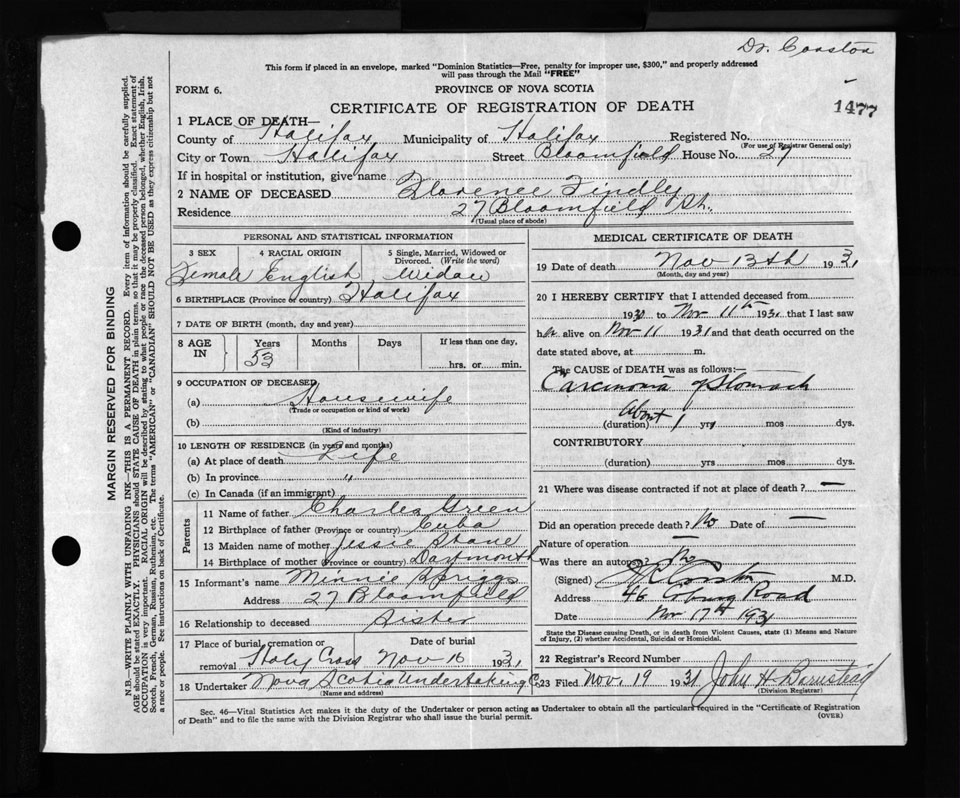 Dr. Coaston
This form if placed in an envelope, marked "Dominion Statistics—Free, penalty for improper use, $300," and properly addressed
will pass through the Mail "FREE"
FORM 6.
PROVINCE OF NOVA SCOTIA
CERTIFICATE OF REGISTRATION OF DEATH
1477
1 PLACE OF DEATH—
County of Halifax Municipality of Halifax Registered No.
(For use of Registrar General only)
City or Town Halifax Street Bloomfield House No. 27
If in hospital or institution, give name
2 NAME OF DECEASED Florence Findley
Residence 27 Bloomfield St.
(Usual place of abode)
PERSONAL AND STATISTICAL INFORMATION
3 SEX 4 RACIAL ORIGIN 5 Single, Married, Widowed or
Divorced. (Write the word)
Female English Widow
6 BIRTHPLACE (Province or country) Halifax
7 DATE OF BIRTH (month, day and year)
8 AGE IN Years Months Days If less than one day,
53 hrs. or min.
9 OCCUPATION OF DECEASED
(a) Housewife
(Trade or occupation or kind of work)
(b)
(Kind of industry)
10 LENGTH OF RESIDENCE (in years and months)
(a) At place of death Life
(b) In province "
(c) In Canada (if an immigrant)
Parents
11 Name of father Charles Green
12 Birthplace of father (Province or country) Cuba
13 Maiden name of mother Jessie Stone
14 Birthplace of mother (Province or country) Dartmouth
15 Informant's name Minnie Spriggs
Address 27 Bloomfield
16 Relationship to deceased Sister
17 Place of burial, cremation or Date of burial
removal Holy Cross Nov 16 1931
18 Undertaker Nova Scotia Undertaking Co
(Name and address)
MEDICAL CERTIFICATE OF DEATH
19 Date of death Nov 13th 1931
(Month, day and year)
20 I HEREBY CERTIFY that I attended deceased from
1930 to Nov 11th 1931 that I last saw
her alive on Nov 11 1931 and that death occurred on
date stated above, at m.
The CAUSE of DEATH was as follows:—
Carcinoma of Stomach
About
(duration) 1 yrs mos dys.
CONTRIBUTORY
(duration) yrs mos. dys.
21 Where was disease contracted if not at place of death? —
Did an operation precede death? No Date of —
Nature of operation —
Was there an autopsy? No
(Signed) M.D.
Address 46 Coburg Road
Date Nov 17th 1931
State the Disease causing Death, or in death from Violent Causes, state (1) Means and Nature
of Injury, (2) whether Accidental, Suicidal or Homicidal.
22 Registrar's Record Number
23 Filed Nov. 19 1931 John H. Barnstead
(Division Registrar)
Sec. 46—Vital Statistics Act makes it the duty of the Undertaker or person acting as Undertaker to obtain all the particulars required in the "Certificate of Registration
of Death" and to file the same with the Division Registrar who shall issue the burial permit.
(OVER)
MARGIN RESERVED FOR BINDING
N.B.—WRITE PLAINLY WITH UNFADING INK—THIS IS A PERMANENT RECORD. Every item of information should be carefully supplied.
AGE should be stated EXACTLY. PHYSICIANS should STATE CAUSE OF DEATH in plain terms, so that it may be properly classified. Exact statement of
OCCUPATION is very important. RACIAL ORIGIN will be described by stating to what people or race the deceased person belonged, whether English, Irish,
Scotch, French, German, Russian, Ruthenian, etc. The terms "AMERICAN" or "CANADIAN" SHOULD NOT BE USED as they express citizenship but not
a race or people. See instructions on back of Certificate.